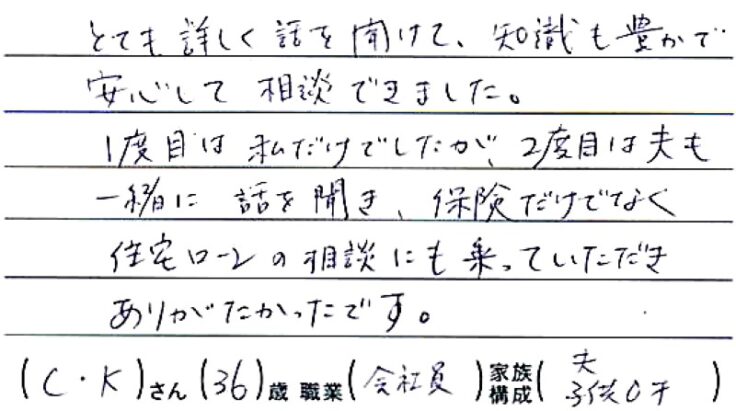 とても詳しく話を聞けて、知識も豊かで
安心して相談できました。
1度目は私だけでしたが、2度目は夫も
一緒に話を聞き、保険だけでなく
住宅ローンの相談にも乗っていただき
ありがたかったです。
(C・K)さん(36)歳 職業(会社員)家族構成(夫 子供0才)